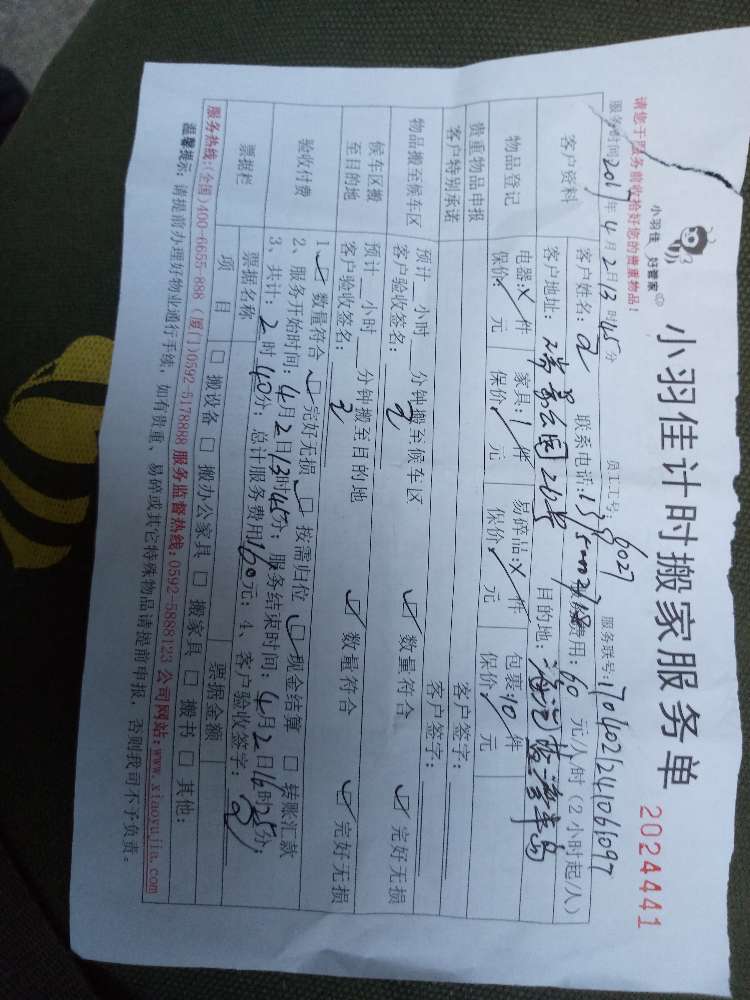 小羽佳 好管家
小羽佳计时搬家服务单
2024441
请您于服务前收拾好您的贵重物品!
服务时间:2017年4月2日13时45分 员工工号: 6027 服务联号:
客户资料
客户姓名: 联系电话: 费用:60元/人/时(2小时起/人)
客户地址:瑞景公园 目的地:
物品登记
电器:×件 家具:1件 易碎品:×件 包裹:10件
保价 元 保价 元 保价 元 保价 元
贵重物品申报 客户签字:
客户特别承诺 客户签字:
物品搬至候车区
预计__小时__分钟搬至候车区 ☑ 数量符合 ☑ 完好无损
客户验收签名:
候车区搬至目的地
预计__小时__分钟搬至目的地 ☑ 数量符合 ☑ 完好无损
客户验收签名:
验收付费
1、☑ 数量符合 ☑ 完好无损 ☑ 按需归位 ☑ 现金结算 □ 转账汇款
2、服务开始时间:4月2日13时45分;服务结束时间:4月2日16时25分;
3、共计:2时40分;总计服务费用160元;4、客户验收签字:
票据栏
票据名称 票据金额
项 目 □ 搬设备 □ 搬办公家具 □ 搬家具 □ 搬书 □ 其他:
服务热线:(全国)400-6655-888 (厦门)0592-5178888 服务监督热线:0592-5888123 公司网站:www.xiaoyujia.com
温馨提示:请提前办理好物业通行手续,如有贵重、易碎或其它特殊物品请提前申报,否则我司不予负责。